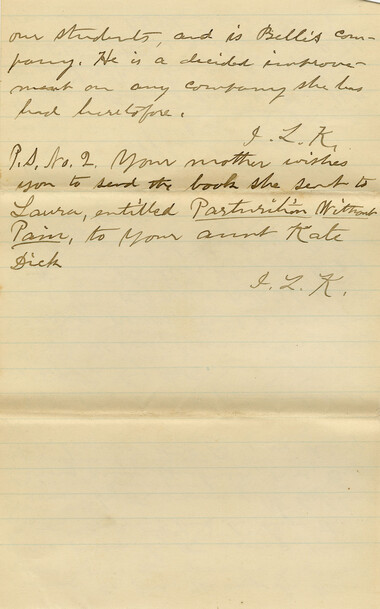 our students, and is Belle's com-
pany. He is a decided improve-
ment on any company she has
had heretofore.
I. L. K.
P.S. No. 2. Your mother wishes
you to send the book she sent to
Laura, entitled Parturition Without
Pain, to your aunt Kate
Dick
I. L. K.